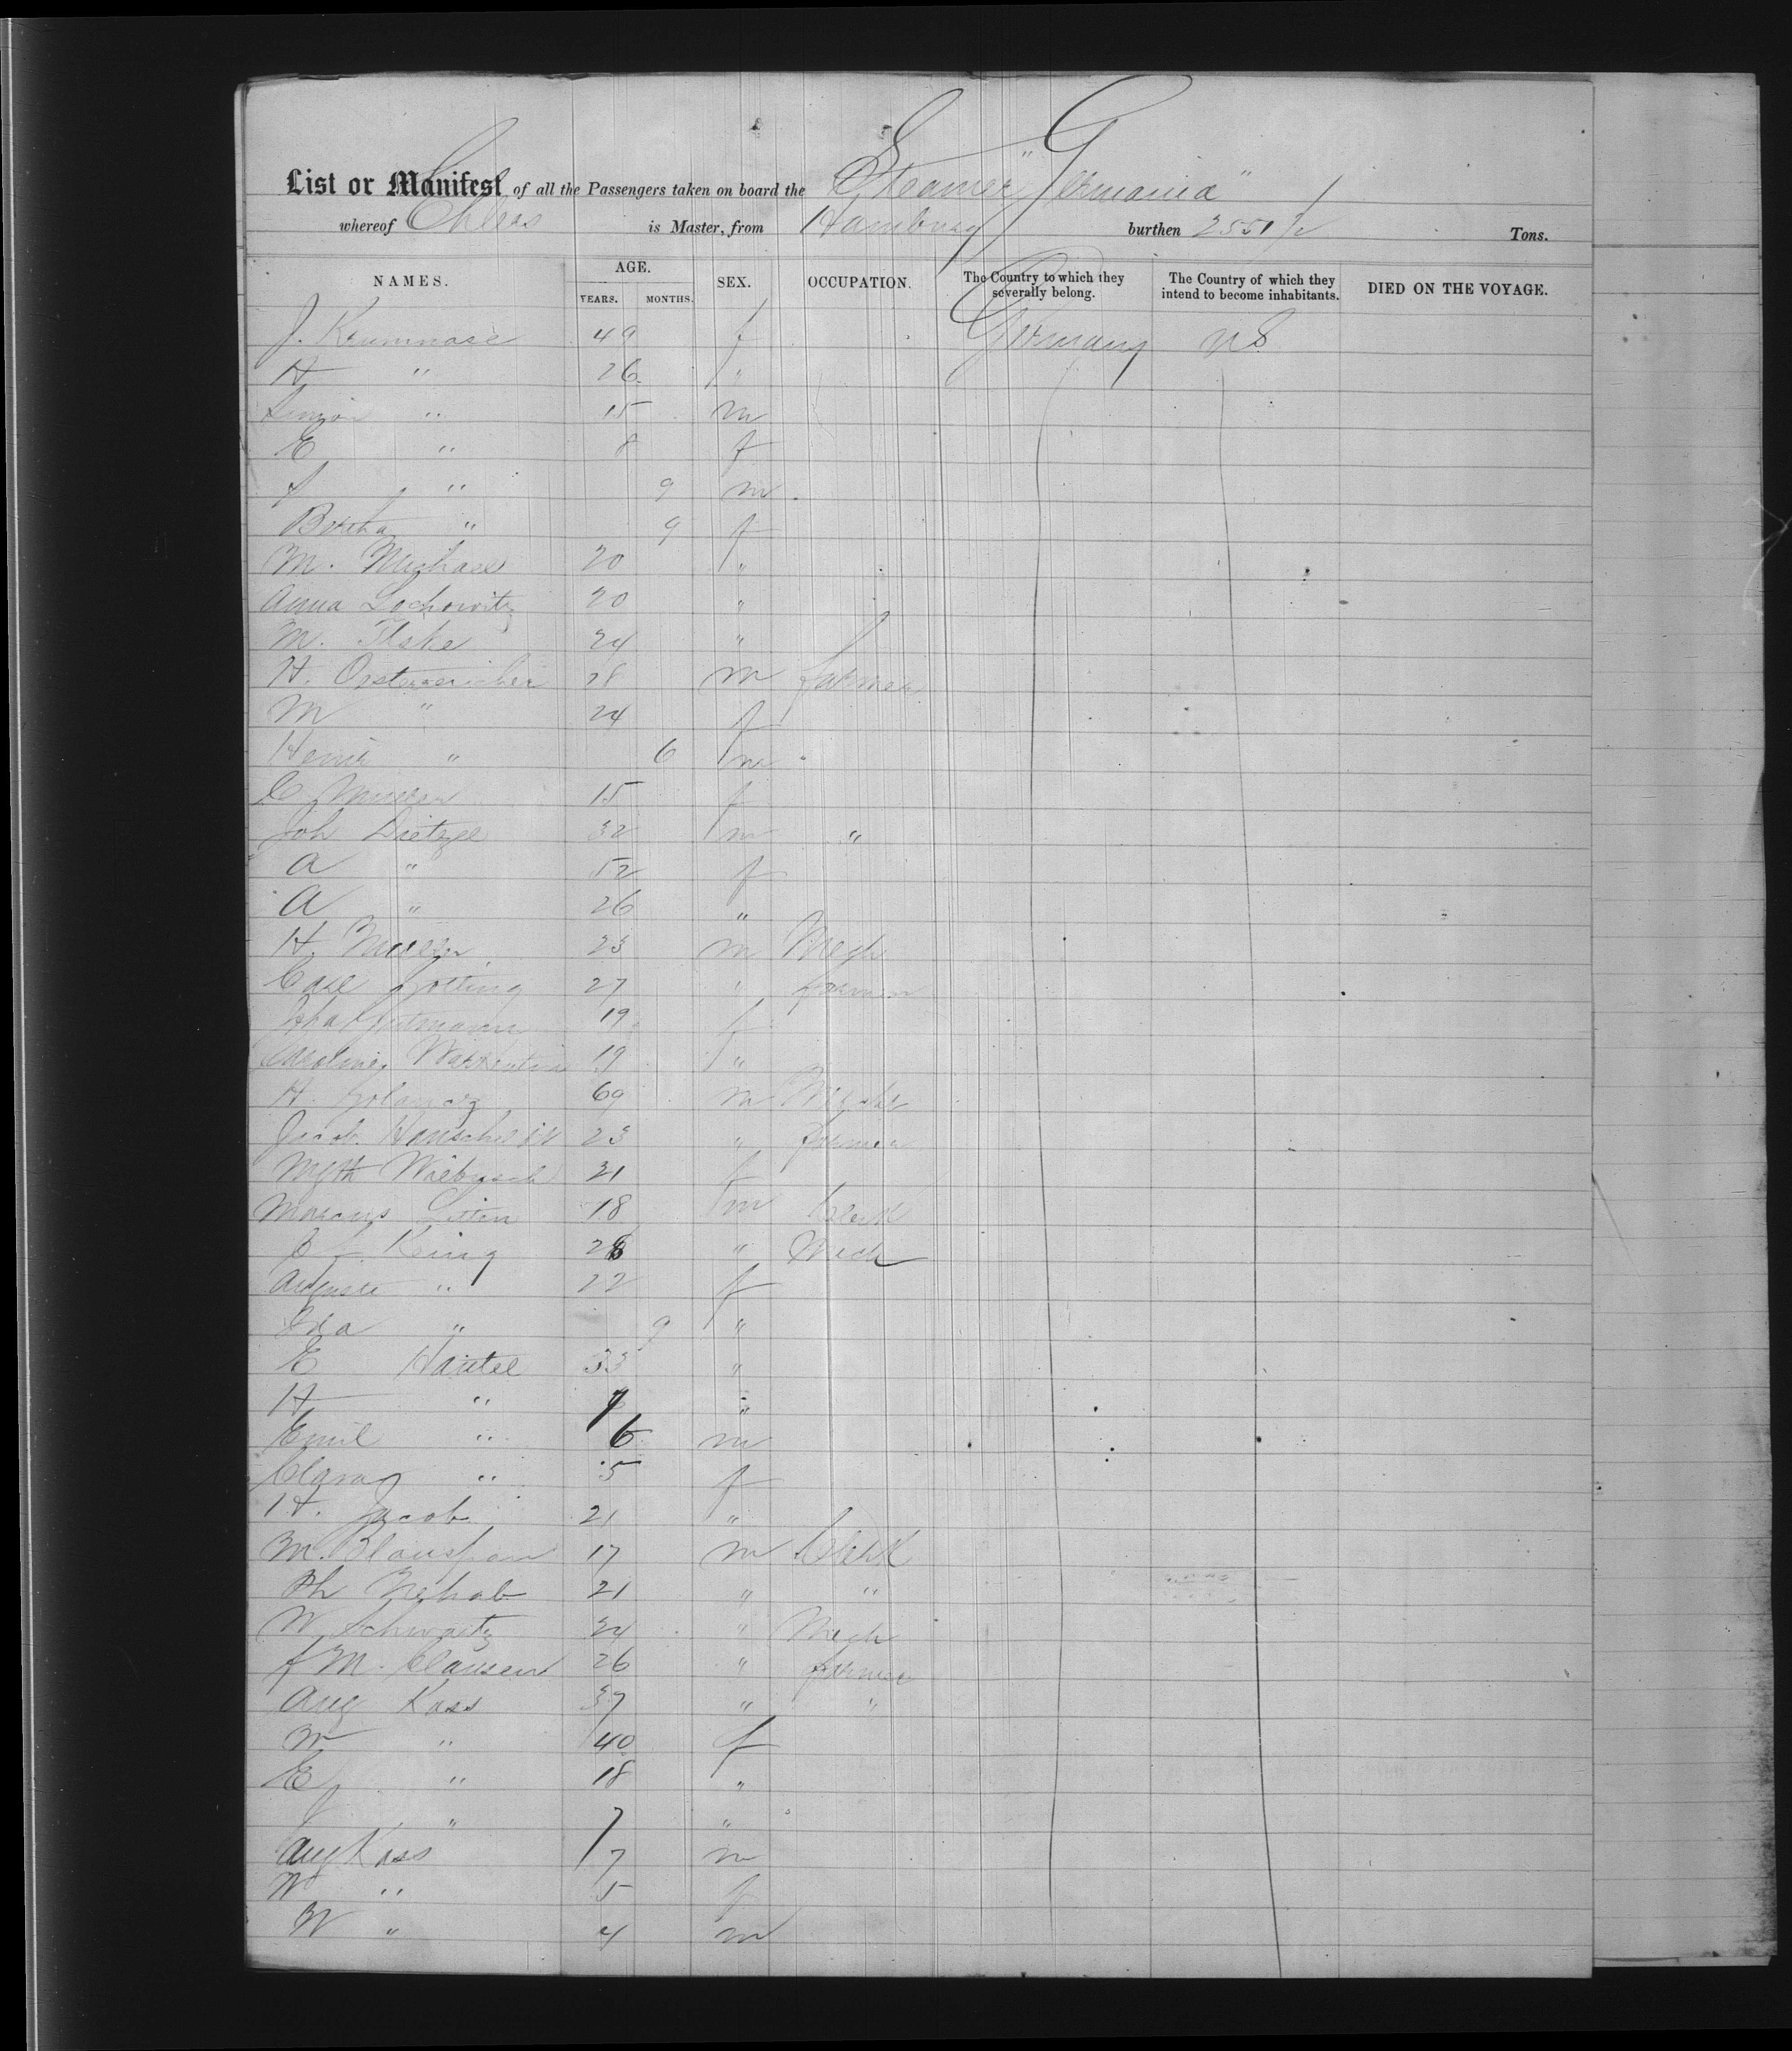 List or Manifest of all the Passengers taken on board the Steamer "Germania"
whereof Ehlers is Master, from Hamburg burthen 2551 1/2 Tons.
NAMES. AGE. YEARS. MONTHS. SEX. OCCUPATION. The Country to which they severally belong. The Country of which they intend to become inhabitants. DIED ON THE VOYAGE.
J. Krumnase 49 f Germany US
H " 26 "
" 15 m
E " 8 f
" 9 m
Bertha " 9 f
M. Michael 20 "
Anna Lochowitz 20 "
M. 24 "
H. Oesterreicher 28 m farmer
M " 24 f
" 6 m
E Muller 15 f
Joh Dietzel 32 m "
A " 52 f
A " 26 "
H. Muller 23 m Mech
Carl 27 " farmer
Gutmann 19 f
Caroline Warkentin 19 "
H. 69 m
Jacob 23 " farmer
21 f
Marcus 18 m Clerk
King 28 " Mech
Auguste " 22 f
Ida " 9 "
E Hartel 33 "
H " 9 "
Emil " 6 m
Clara " 5 f
H. Jacob 21 "
M. 17 m Clerk
21 " "
W Schwartz 24 " Mech
M. Clausen 26 " farmer
Aug Kass 37 " "
W " 40 f
E " 18 "
" 7 "
Aug Kass 7 m
W " 5 f
W " 4 m